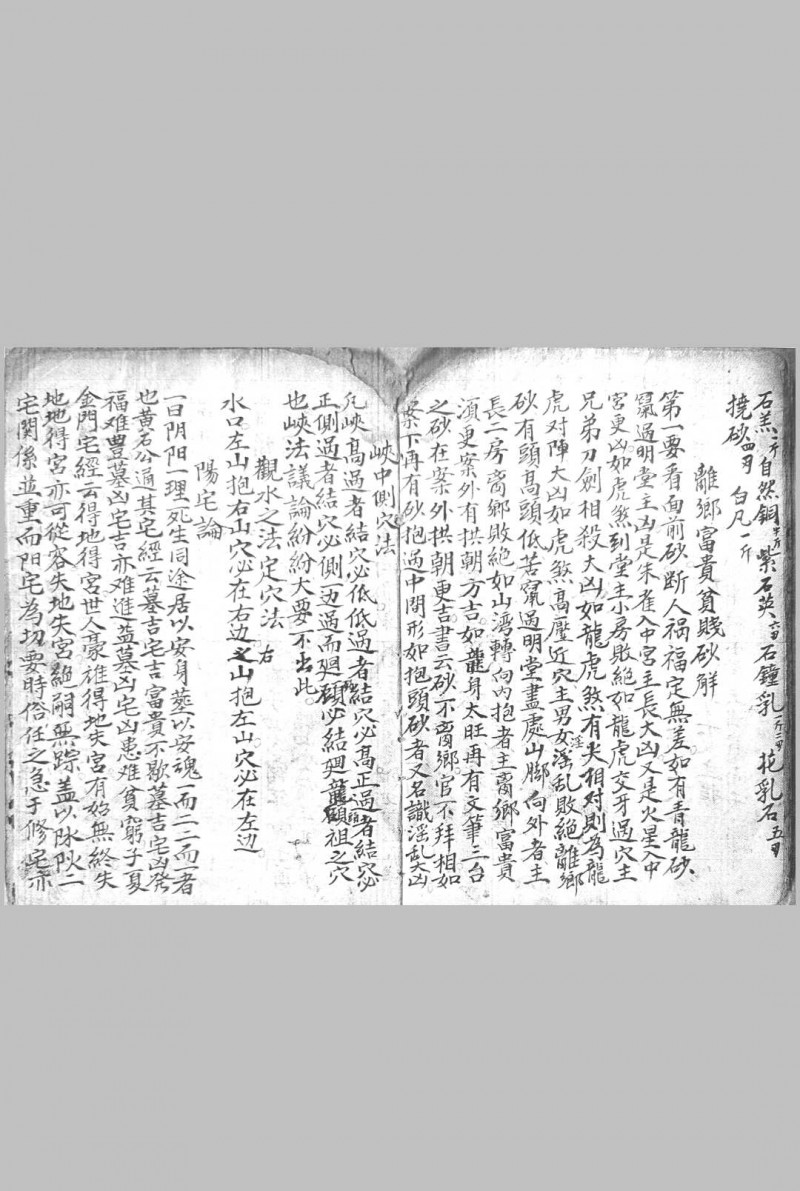 石羔一斤自然銅十斤紫石英六刄石鐘乳一斤二刄花乳石五刄
撓砂四刄 白凡一斤
離鄉富貴貧賤砂解
第一要看面前砂断人禍福定無差如有青龍砂
竄過明堂主凶是朱雀入中宮主長大凶又是火星入中
宮更凶如虎煞到堂主小房敗絕如龍虎交牙過穴主
兄弟刀劍相殺大凶如龍虎煞有尖相对則為龍
虎对陣大凶如虎煞高壓近穴主男女淫亂敗絕離鄉
砂有頭高頭低苦竄過明堂盡處山脚向外者主
長二房离鄉敗絕如山灣轉向內抱者主离鄉富貴
須更案外有拱朝方吉如龍身太旺再有文筆三台
之砂在案外拱朝更吉書云砂不离鄉官不拜相如
案下再有砂抱過中間形如抱頭砂者又名識淫乱大凶
峽中側穴法
凢峽高過者結穴必低低過者結穴必高正過者結穴必
正側過者結穴必側边過而廻顧必結廻龍顧祖之穴
也峽法議論紛紛大要不出此
觀水之法定穴法
水口左山抱右山穴必在右边右之山抱左山穴必在左边
陽宅論
一曰阴阳一理死生同途居以安身塟以安魂一而二二而一者
也黃石公通其宅經云墓吉宅吉富貴不歇墓吉宅凶發
福难豊墓凶宅吉亦难進益墓凶宅凶患难貧窮子夏
金門宅經云得地得宮世人豪雄得地失宮有始無終失
地得宮亦可從容失地失宮絕嗣無踪盖以阦阦二
宅関係並重而阳宅為切要時俗任之急于修宅亦